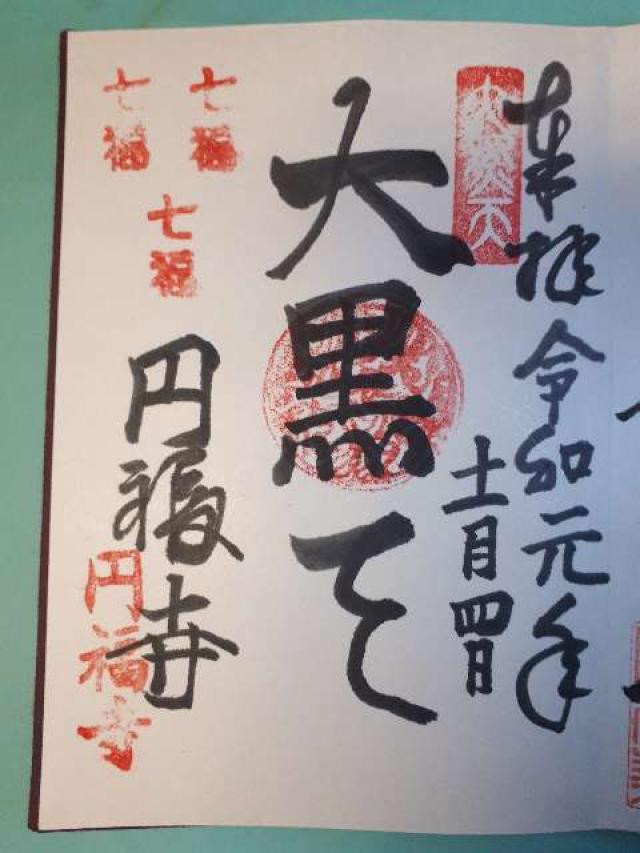 奉拝 令和元年
十一月四日
大黒天
七福
七福
七福
円福寺
円福寺